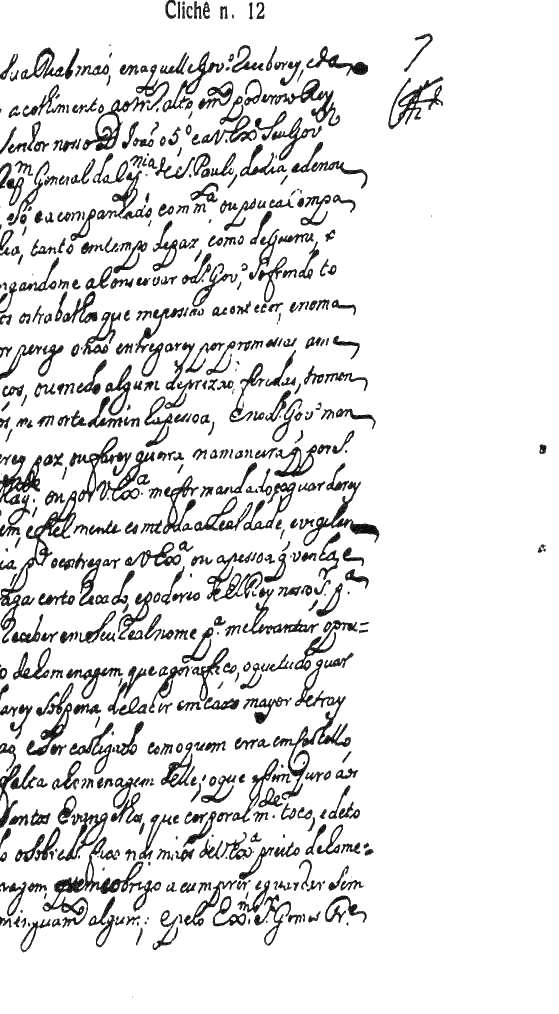 Clichê n. 12
7
Sua Real maõ, enaquelle Gov.º receberey, eda
acolhimento ao m.to alto, em.to poderoso Rey
Senhor nosso D. Joaõ o 5.º eaV.Ex.ª Seu Gov.or
Cap.m General da Cap.nia de S. Paulo, dedia, edenou
eSó, e acompanhado, com m.ta ou pouca Compa
hia, tanto emtempo depaz, como deGuerra, e
ngandome aConservar od.º Gov.º, Sofrendo to
os ostrabalhos que meposão acontecer, enoma
or perigo onaõ entregarey por promessas, ame
ços, oumedo algum deprizaõ, feridas, tromen
os, ne morte deminha pessoa, Enod.º Gov.º man
erey paz, oufarey guerra, namaneira q̃ por S.
Mag.de, ou por V.Ex.ª mefor mandado, eaguardarey
em, efielmente comtoda aLealdade, evigelan
ia, p.ª oentregar aV.Ex.ª, ou apessoa q̃ venha, e
raga certo recado, epoderio de ElRey nosso S.r p.ª
Receber emSeu realnome p.ª melevantar opre=
o deLomenagem, que agora fico, oquetudo guar
darey Sobpena, deCahir em Cazo mayor detray
aõ, eSer castigado comoquem erra emCastello,
efalta aLomenagem delle; oque assim Juro aos
Santos Evangelhos, que corporalm.te toco, edeto
o osobred.º faço nas mãos deV.Ex.ª preito deLome=
nagem, quemeobrigo acumprir, eguardar Sem
mingua algum.; epelo Ex.mo S.r Gomes Fr.e